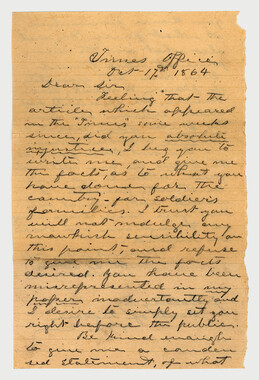 Times Office,
Oct 17th 1864
Dear Sir,
Feeling that the
article, which appeared
in the "Times" some weeks
since, did you absolute
injustice, I beg you to
write me, and give me
the facts, as to what you
have done for the
country - for soldier's
families. I trust you
will not indulge any
mawkish sensibility on
this point, and refuse
to give me the facts
desired. You have been
misrepresented in my
paper inadvertently and
I desire to simply set you
right before the public.
Be kind enough
to give me a conden
sed statement, of what